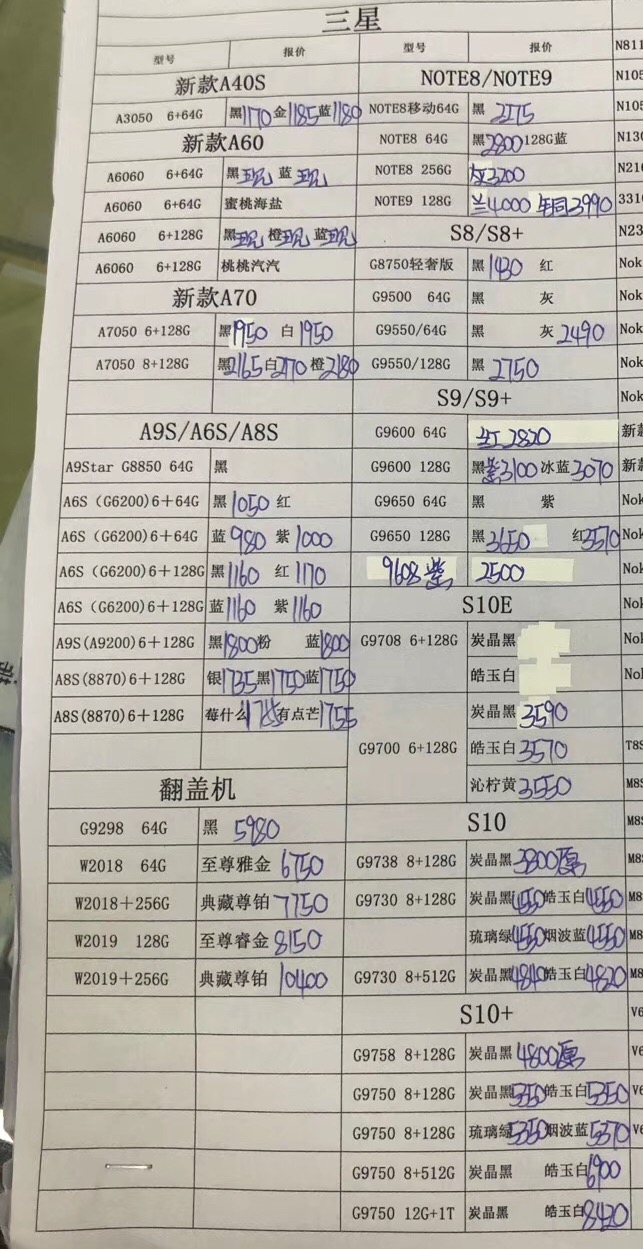 三星
型号 报价 型号 报价 N811
新款A40S NOTE8/NOTE9 N105
A3050 6+64G 黑1170 金1185 蓝1180 NOTE8移动64G 黑 2175 N105
新款A60 NOTE8 64G 黑2800 128G蓝 N130
A6060 6+64G 黑现 蓝现 NOTE8 256G 灰3200 N216
A6060 6+64G 蜜桃海盐 NOTE9 128G 兰4000 3990 331
A6060 6+128G 黑现 橙现 蓝现 S8/S8+ N23
A6060 6+128G 桃桃汽汽 G8750轻奢版 黑 1430 红 Nok
新款A70 G9500 64G 黑 灰 Nok
A7050 6+128G 黑1950 白1950 G9550/64G 黑 灰 2490 Nok
A7050 8+128G 黑2165 白2170 橙2180 G9550/128G 黑 2750 Nok
S9/S9+ Nok
A9S/A6S/A8S G9600 64G 红 2820 新款
A9Star G8850 64G 黑 G9600 128G 黑紫3100 冰蓝3070 新款
A6S（G6200)6+64G 黑1050 红 G9650 64G 黑 紫 Nok
A6S（G6200)6+64G 蓝980 紫1000 G9650 128G 黑3650 红3570 Nok
A6S（G6200)6+128G 黑1160 红1170 9608紫 2500 Nok
A6S（G6200)6+128G 蓝1160 紫1160 S10E Nok
A9S(A9200)6+128G 黑1800粉 蓝1800 G9708 6+128G 炭晶黑 Nok
A8S(8870)6+128G 银1735黑1750蓝1750 皓玉白 Nok
A8S(8870)6+128G 莓什么1755有点芒1755 炭晶黑3590
G9700 6+128G 皓玉白3570 T8S
翻盖机 沁柠黄3550 M8S
G9298 64G 黑 5980 S10 M8S
W2018 64G 至尊雅金 6750 G9738 8+128G 炭晶黑3800 M8S
W2018+256G 典藏尊铂7750 G9730 8+128G 炭晶黑4550皓玉白4550 M8S
W2019 128G 至尊睿金8150 琉璃绿4550烟波蓝4550 M8S
W2019+256G 典藏尊铂 10400 G9730 8+512G 炭晶黑4840皓玉白4820 M8S
S10+ V6
G9758 8+128G 炭晶黑4800 V6
G9750 8+128G 炭晶黑5350皓玉白5350 V6
G9750 8+128G 琉璃绿5350烟波蓝5370 V6
G9750 8+512G 炭晶黑 皓玉白6900
G9750 12G+1T 炭晶黑 皓玉白8420